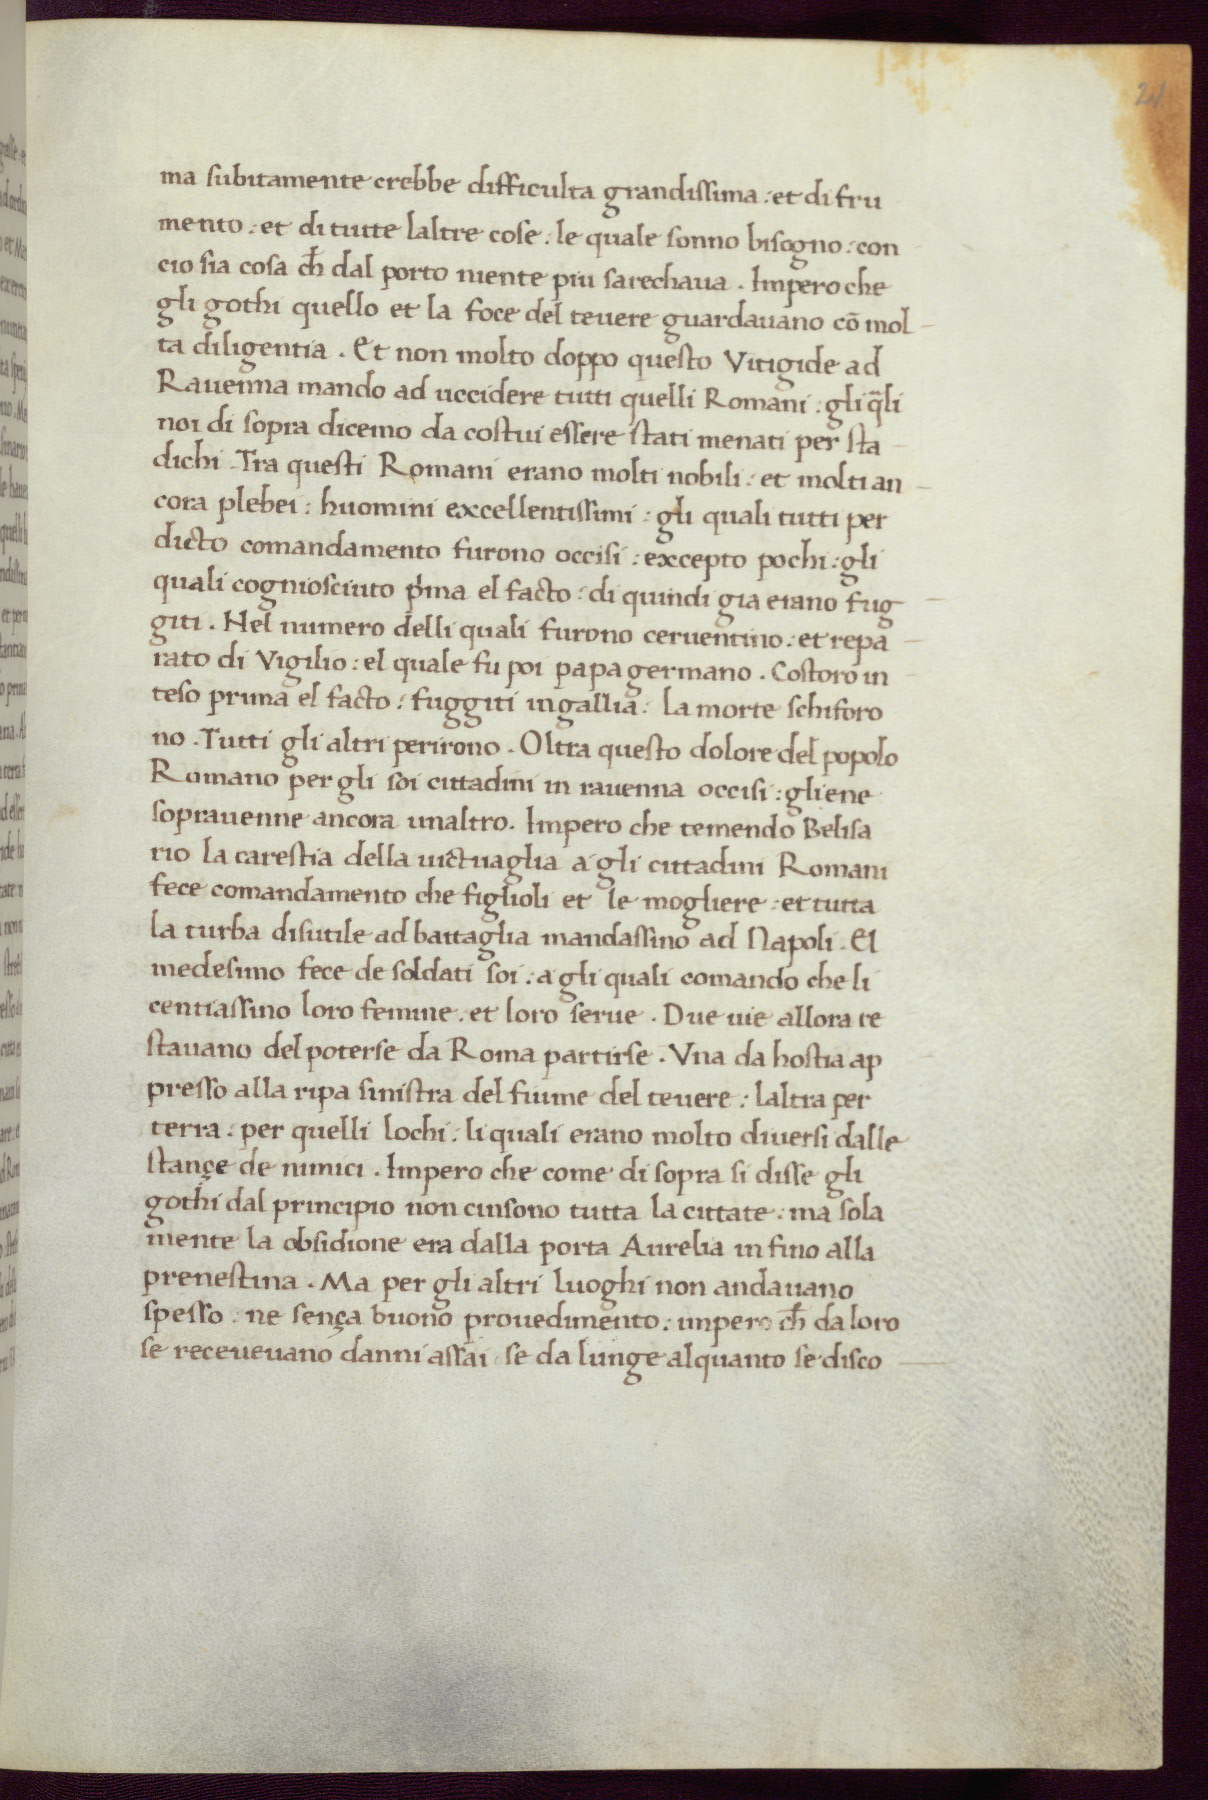 21
ma subitamente crebbe difficulta grandissima : et di fru
mento : et di tutte laltre cose : le quale sonno bisogno : con
cio sia cosa ch̄ dal porto niente piu sarechaua . Impero che
gli gothi quello et la foce del teuere guardauano cō mol
ta diligentia . Et non molto doppo questo Vitigide ad
Rauenna mando ad uccidere tutti quelli Romani : gli q̄li
noi di sopra dicemo da costui essere stati menati per sta
dichi . Tra questi Romani erano molti nobili : et molti an
cora plebei : huomini excellentissimi : gli quali tutti per
dicto comandamento furono occisi : excepto pochi : gli
quali cognosciuto p̄ma el facto : di quindi gia erano fug
giti . Nel numero delli quali furono ceruentino : et repa
rato di Vigilio : el quale fu poi papa germano . Costoro in
teso prima el facto : fuggiti in gallia : la morte schiforo
no . Tutti gli altri perirono . Oltra questo dolore del popolo
Romano per gli soi cittadini in rauenna occisi : gliene
soprauenne ancora unaltro . Impero che temendo Belisa
rio la carestia della uictuaglia a gli cittadini Romani
fece comandamento che figlioli et le mogliere : et tutta
la turba disutile ad battaglia mandassino ad Napoli . El
medesimo fece de soldati soi : a gli quali comando che li
centiassino loro femine : et loro serue . Due uie allora re
stauano del poterse da Roma partirse . Vna da hostia ap
presso alla ripa sinistra del fiume del teuere : laltra per
terra : per quelli lochi : li quali erano molto diuersi dalle
stançe de nimici . Impero che come di sopra si disse gli
gothi dal principio non cinsono tutta la cittate : ma sola
mente la obsidione era dalla porta Aurelia in fino alla
prenestina . Ma per gli altri luoghi non andauano
spesso : ne sença buono prouedimento : impero ch̄ da loro
se receueuano danni assai se da lunge alquanto se disco